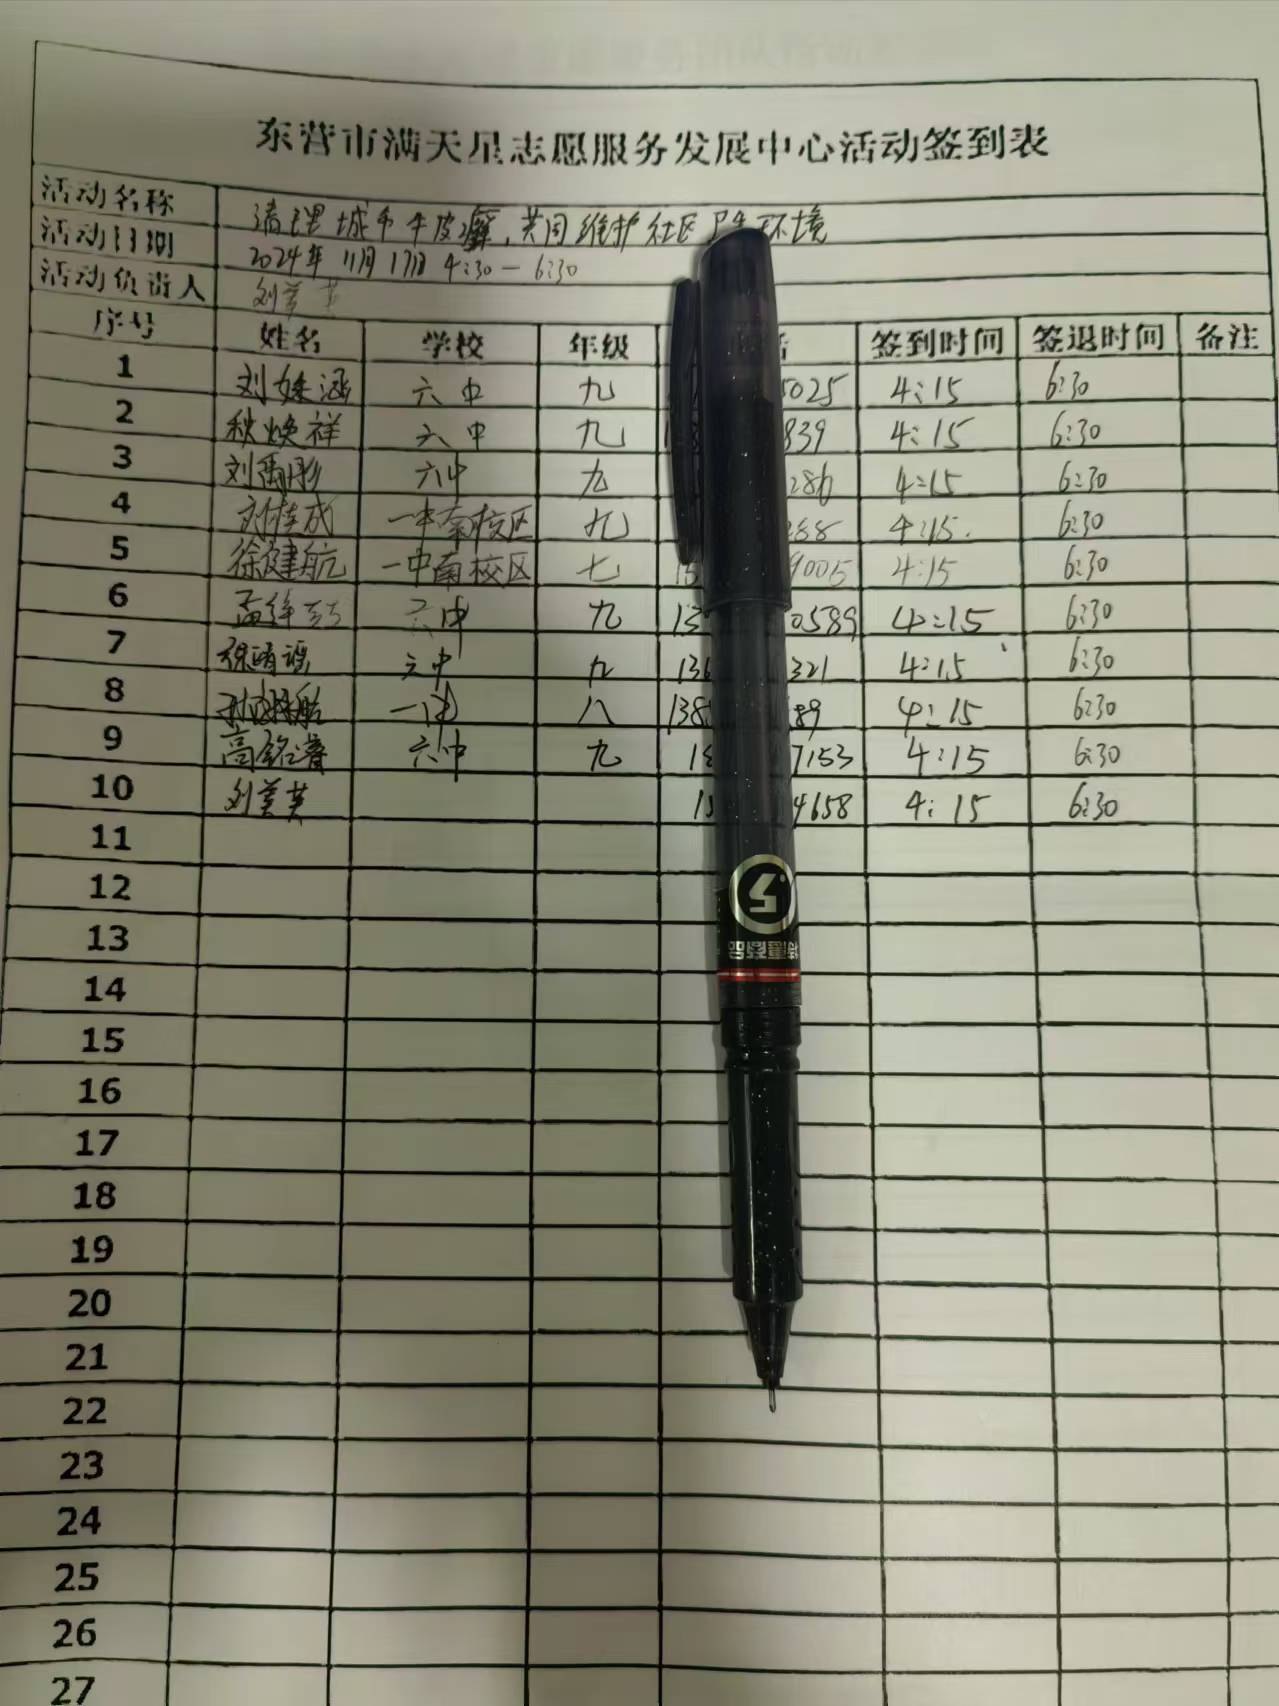 东营市满天星志愿服务发展中心活动签到表
活动名称 清理城市牛皮癣,共同维护社区卫生环境
活动日期 2024年11月17日 4:30—6:30
活动负责人 刘美英
序号 姓名 学校 年级 话 签到时间 签退时间 备注
1 刘姝涵 六中 九 5025 4:15 6:30
2 秋焕祥 六中 九 839 4:15 6:30
3 刘禹彤 六中 九 286 4:15 6:30
4 刘桂成 一中南校区 九 288 4:15 6:30
5 徐健航 一中南校区 七 15 9005 4:15 6:30
6 孟 六中 九 13 0589 4:15 6:30
7 六中 九 136 321 4:15 6:30
8 八 138 89 4:15 6:30
9 高铭濬 六中 九 18 7153 4:15 6:30
10 刘美英 15 4658 4:15 6:30
11
12
13
14
15
16
17
18
19
20
21
22
23
24
25
26
27